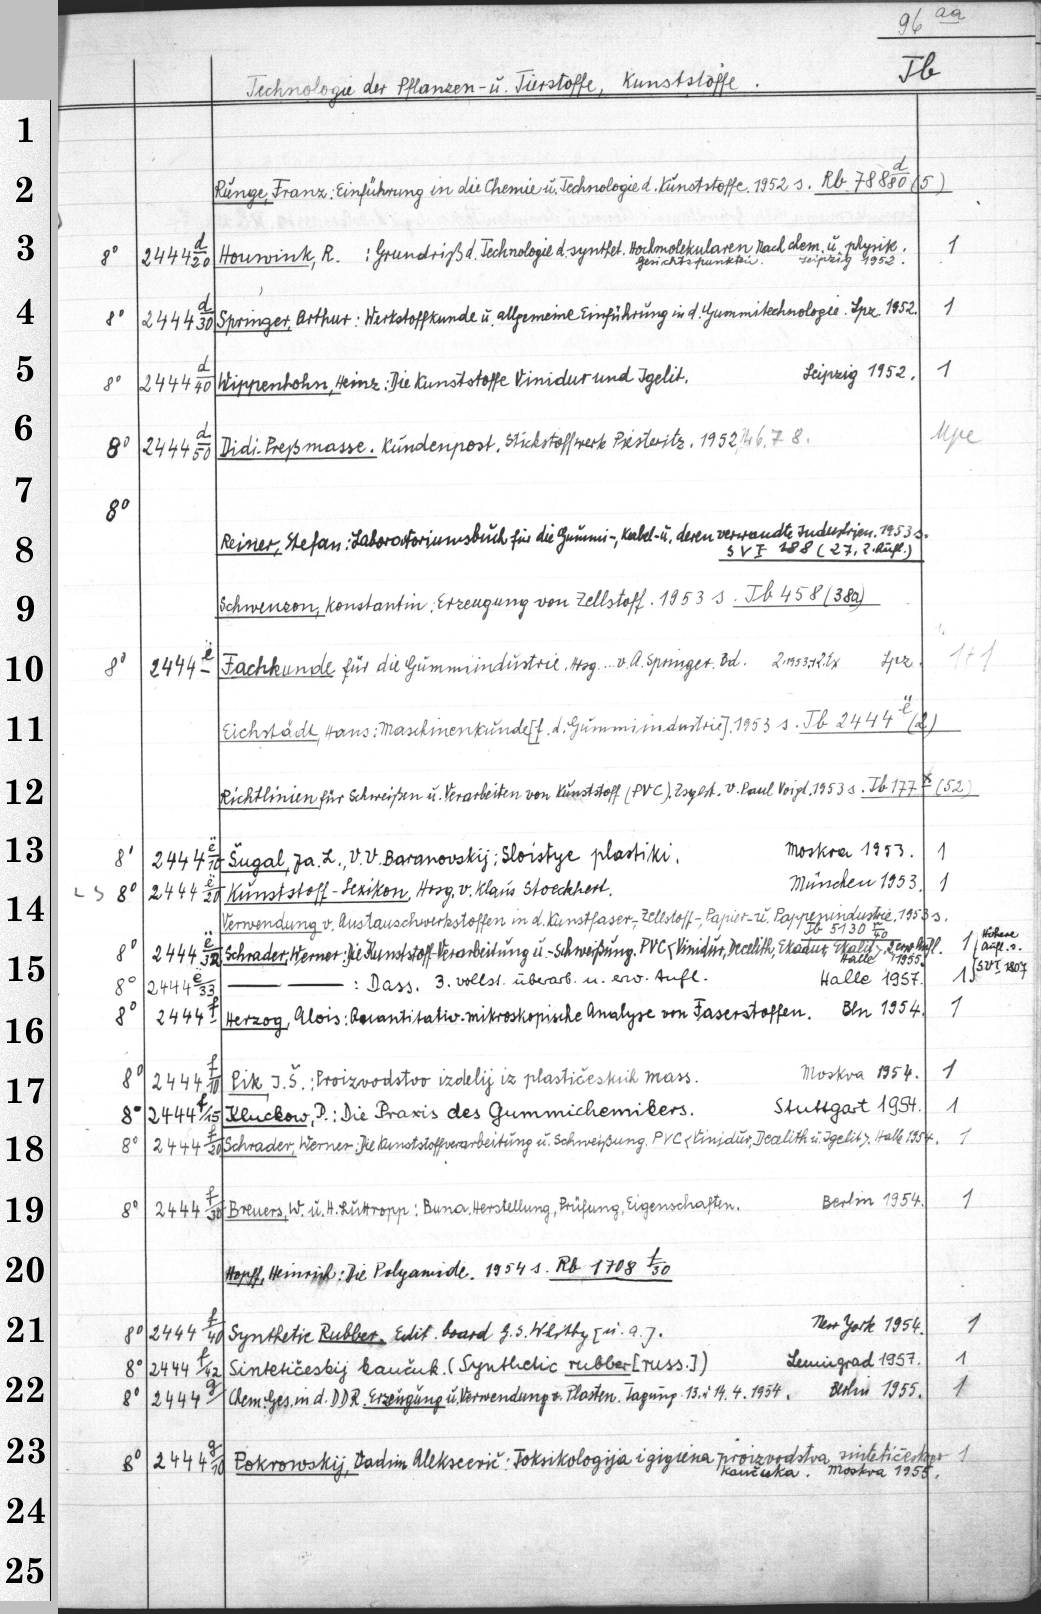 96 aa
Jb
Technologie der Pflanzen- u. Tierstoffe, Kunststoffe.
1
2 Runge, Franz: Einführung in die Chemie u. Technologie d. Kunststoffe. 1952 s. Rb 788 d/80 (5)
3 8° 2444 d/20 Houwink, R. : Grundriß d. Technologie d. synthet. Hochmolekularen nach chem. u. physik. 1
Gesichtspunkten. Leipzig 1952.
4 8° 2444 d/30 Springer, Arthur: Werkstoffkunde u. allgemeine Einführung in d. Gummitechnologie. Lpz 1952. 1
5 8° 2444 d/40 Wippenhohn, Heinz: Die Kunststoffe Vinidur und Igelit. Leipzig 1952. 1
6 8° 2444 d/50 Didi-Preßmasse. Kundenpost. Stickstoffwerk Piesteritz. 1952 Nr 6. 7 8.
7 8°
8 Reiner, Stefan: Laboratoriumsbuch für die Gummi-, Kabel- u. deren verwandte Industrien. 1953 s.
S V I 188 (27, 2. Aufl.)
9 Schwenzon, Konstantin: Erzeugung von Zellstoff. 1953 s. Jb 458 (38a)
10 8° 2444 ë/– Fachkunde für die Gummiindustrie. Hrsg. ... v. A. Springer. Bd. 2. 1953 Lpz. 1+1
11 Eichstädt, Hans: Maschinenkunde [f. d. Gummiindustrie]. 1953 s. Jb 2444 ë (2)
12 Richtlinien für Schweißen u. Verarbeiten von Kunststoff (PVC). Zsgest. v. Paul Voigt. 1953 s. Jb 177 x (52)
13 8° 2444 ë/10 Šugal, Ja. L., V. V. Baranovskij: Sloistye plastiki. Moskva 1953. 1
8° 2444 ë/20 Kunststoff-Lexikon, Hrsg. v. Klaus Stoeckhert. München 1953. 1
14 Verwendung v. Austauschwerkstoffen in d. Kunstfaser-, Zellstoff-, Papier- u. Pappenindustrie. 1953 s.
Jb 5130 /40
8° 2444 ë/32 Schrader, Werner: Die Kunststoff-Verarbeitung u. -Schweißung. PVC <Vinidur, Decelith, Ekadur, Ekalit> 2. erw. Aufl. 1 Höhere
Halle 1955. Aufl. s.
15 8° 2444 ë/33 —— —— : Dass. 3. vollst. überarb. u. erw. Aufl. Halle 1957. 1 SVI 1807
16 8° 2444 f Herzog, Alois: Quantitativ-mikroskopische Analyse von Faserstoffen. Bln 1954. 1
17 8° 2444 f/10 Pik, I. Š.: Proizvodstvo izdelij iz plastičeskich mass. Moskva 1954. 1
8° 2444 f/15 Kluckow, P.: Die Praxis des Gummichemikers. Stuttgart 1954. 1
18 8° 2444 f/20 Schrader, Werner: Die Kunststoffverarbeitung u. Schweißung. PVC <Vinidur, Decelith u. Igelit>. Halle 1954. 1
19 8° 2444 f/30 Breuers, W. u. H. Luttropp: Buna. Herstellung, Prüfung, Eigenschaften. Berlin 1954. 1
20 Hopff, Heinrich: Die Polyamide. 1954 s. Rb 1708 f/50
21 8° 2444 f/40 Synthetic Rubber. Edit. board G. S. Whitby [u. a.]. New York 1954. 1
8° 2444 f/42 Sintetičeskij kaučuk. (Synthetic rubber [russ.]) Leningrad 1957. 1
22 8° 2444 g Chem. Ges. in d. DDR. Erzeugung u. Verwendung v. Plasten. Tagung 13. u. 14. 4. 1954. Berlin 1955. 1
23 8° 2444 g/10 Pokrowskij, Vadim Alekseevič: Toksikologija i gigiena proizvodstva sintetičeskogo 1
kaučuka. Moskva 1955.
24
25